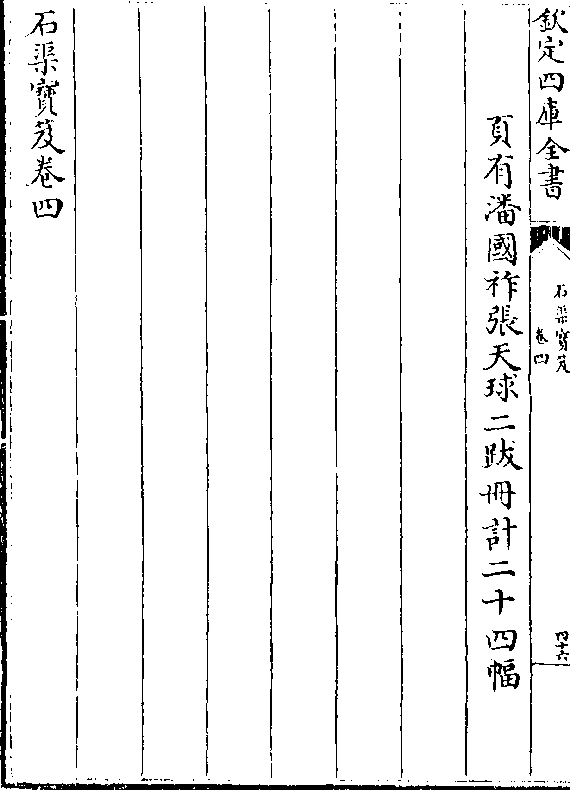 欽定四庫全書
石渠寶笈
卷四
四十六
頁有潘國祚張天球二跋冊計二十四幅
石渠寶笈卷四